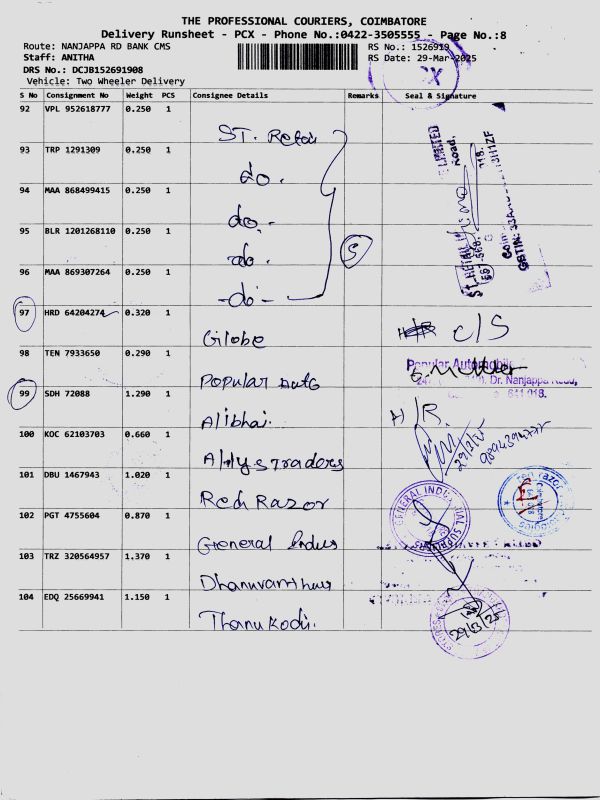 THE PROFESSIONAL COURIERS, COIMBATORE
Delivery Runsheet - PCX - Phone No.:0422-3505555 - Page No.:8
Route: NANJAPPA RD BANK CMS RS No.: 1526919
Staff: ANITHA RS Date: 29-Mar-2025
DRS No.: DCJB152691908
Vehicle: Two Wheeler Delivery
S No Consignment No Weight PCS Consignee Details Remarks Seal & Signature
92 VPL 952618777 0.250 1
ST. Retai
93 TRP 1291309 0.250 1
do.
94 MAA 868499415 0.250 1
do.
95 BLR 1201268110 0.250 1
do.
5
96 MAA 869307264 0.250 1
do
97 HRD 64204274 0.320 1
Globe C/S
98 TEN 7933650 0.290 1
Popular Auto
Popular Automobile
Dr. Nanjappa Road,
99 SDH 72088 1.290 1
Alibhai H/R.
100 KOC 62103703 0.660 1
29/3/25
Traders
101 DBU 1467943 1.020 1
Red Razor
102 PGT 4755604 0.870 1
General Indus
GENERAL INDUSTRIAL SUPPLIERS
103 TRZ 320564957 1.370 1
104 EDQ 25669941 1.150 1
Thanukodi.
29/3/25